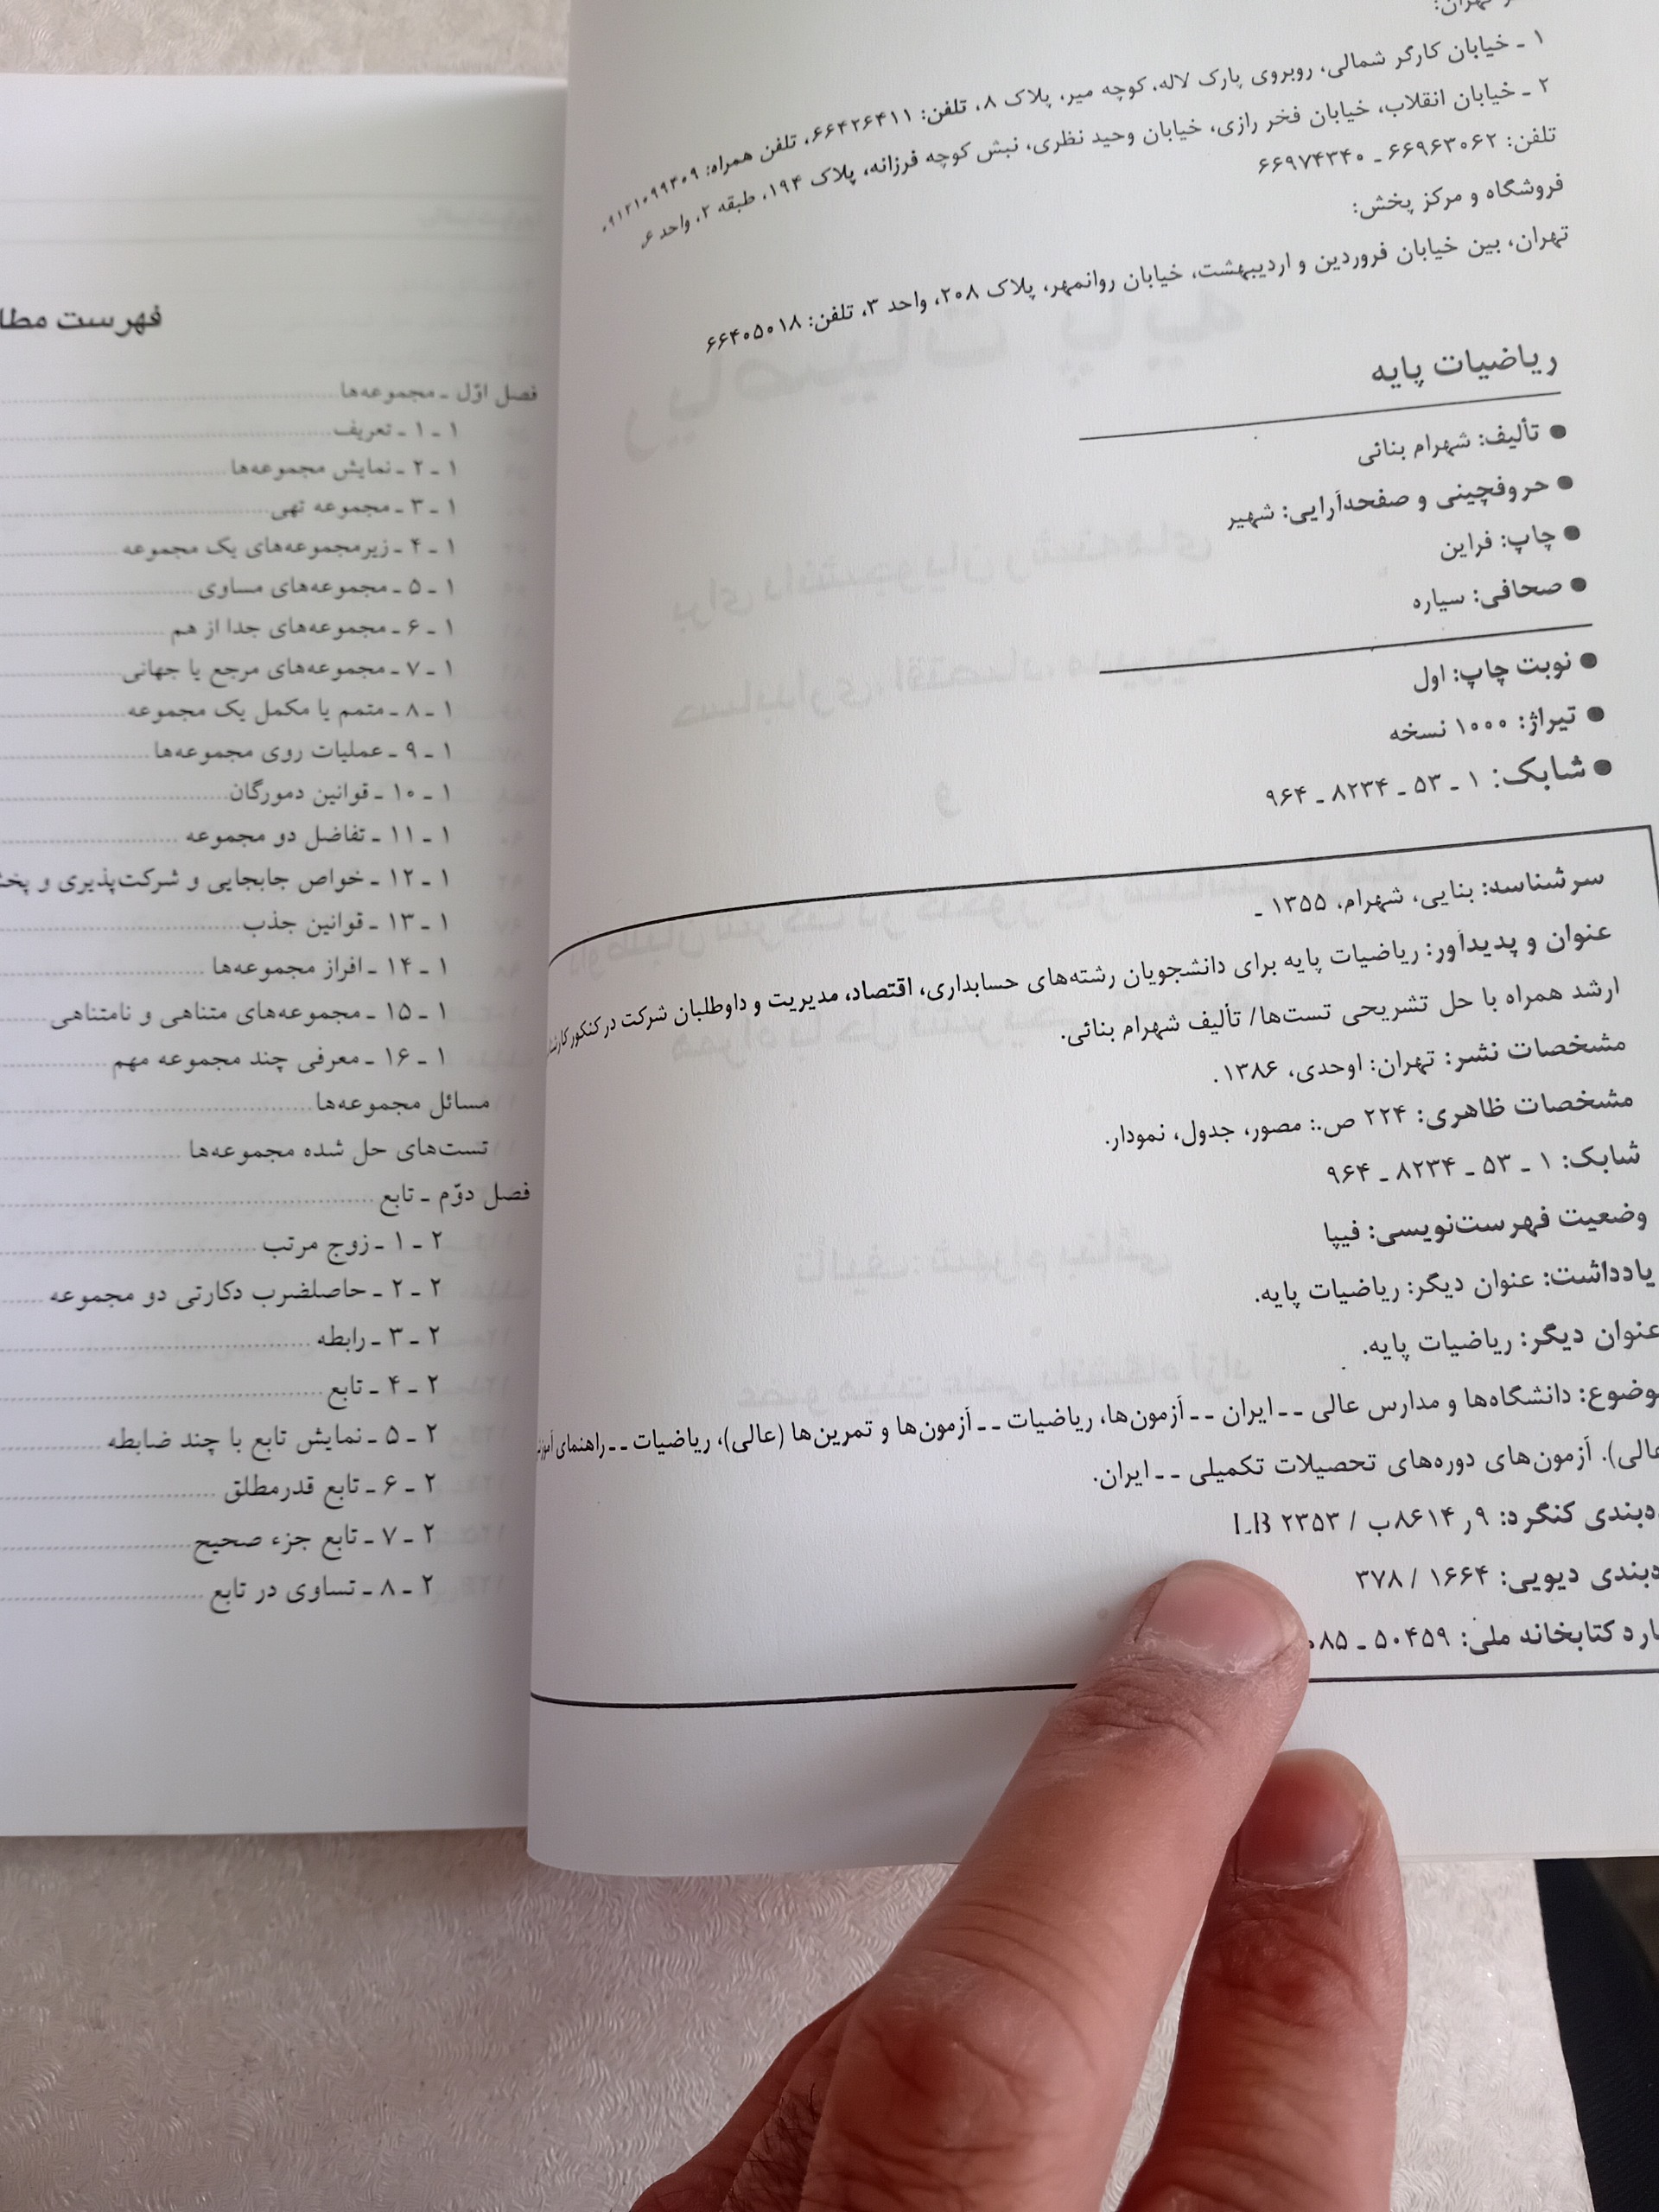 تهران:
۱ ـ خیابان کارگر شمالی، روبروی پارک لاله، کوچه میر، پلاک ۸، تلفن: ۶۶۴۲۶۴۱۱، تلفن همراه: ۰۹۱۲۱۰۹۹۳۰۹
۲ ـ خیابان انقلاب، خیابان فخر رازی، خیابان وحید نظری، نبش کوچه فرزانه، پلاک ۱۹۴، طبقه ۲، واحد ۶
تلفن: ۶۶۹۶۳۰۶۲ ـ ۶۶۹۷۴۳۴۰
فروشگاه و مرکز پخش:
تهران، بین خیابان فروردین و اردیبهشت، خیابان روانمهر، پلاک ۲۰۸، واحد ۳، تلفن: ۶۶۴۰۵۰۱۸
ریاضیات پایه
● تألیف: شهرام بنائی
● حروفچینی و صفحه‌آرایی: شهیر
● چاپ: فراین
● صحافی: سیاره
● نوبت چاپ: اول
● تیراژ: ۱۰۰۰ نسخه
● شابک: ۱ ـ ۵۳ ـ ۸۲۳۴ ـ ۹۶۴
سرشناسه: بنایی، شهرام، ۱۳۵۵ ـ
عنوان و پدیدآور: ریاضیات پایه برای دانشجویان رشته‌های حسابداری، اقتصاد، مدیریت و داوطلبان شرکت در کنکور
ارشد همراه با حل تشریحی تست‌ها/ تألیف شهرام بنائی.
مشخصات نشر: تهران: اوحدی، ۱۳۸۶.
مشخصات ظاهری: ۲۲۴ ص.: مصور، جدول، نمودار.
شابک: ۱ ـ ۵۳ ـ ۸۲۳۴ ـ ۹۶۴
وضعیت فهرست‌نویسی: فیپا
یادداشت: عنوان دیگر: ریاضیات پایه.
عنوان دیگر: ریاضیات پایه.
وضوع: دانشگاه‌ها و مدارس عالی ـ ـ ایران ـ ـ آزمون‌ها، ریاضیات ـ ـ آزمون‌ها و تمرین‌ها (عالی)، ریاضیات ـ ـ راهنمای
عالی). آزمون‌های دوره‌های تحصیلات تکمیلی ـ ـ ایران.
ده‌بندی کنگره: ۹ر۸۶۱۴ب / ۲۳۵۳ LB
ده‌بندی دیویی: ۱۶۶۴ / ۳۷۸
اره کتابخانه ملی: ۵۰۴۵۹ ـ ۰۸۵
فهرست مطا
فصل اوّل ـ مجموعه‌ها
۱ ـ ۱ ـ تعریف
۱ ـ ۲ ـ نمایش مجموعه‌ها
۱ ـ ۳ ـ مجموعه تهی
۱ ـ ۴ ـ زیرمجموعه‌های یک مجموعه
۱ ـ ۵ ـ مجموعه‌های مساوی
۱ ـ ۶ ـ مجموعه‌های جدا از هم
۱ ـ ۷ ـ مجموعه‌های مرجع یا جهانی
۱ ـ ۸ ـ متمم یا مکمل یک مجموعه
۱ ـ ۹ ـ عملیات روی مجموعه‌ها
۱ ـ ۱۰ ـ قوانین دمورگان
۱ ـ ۱۱ ـ تفاضل دو مجموعه
۱ ـ ۱۲ ـ خواص جابجایی و شرکت‌پذیری و پخش
۱ ـ ۱۳ ـ قوانین جذب
۱ ـ ۱۴ ـ افراز مجموعه‌ها
۱ ـ ۱۵ ـ مجموعه‌های متناهی و نامتناهی
۱ ـ ۱۶ ـ معرفی چند مجموعه مهم
مسائل مجموعه‌ها
تست‌های حل شده مجموعه‌ها
فصل دوّم ـ تابع
۲ ـ ۱ ـ زوج مرتب
۲ ـ ۲ ـ حاصلضرب دکارتی دو مجموعه
۲ ـ ۳ ـ رابطه
۲ ـ ۴ ـ تابع
۲ ـ ۵ ـ نمایش تابع با چند ضابطه
۲ ـ ۶ ـ تابع قدرمطلق
۲ ـ ۷ ـ تابع جزء صحیح
۲ ـ ۸ ـ تساوی در تابع